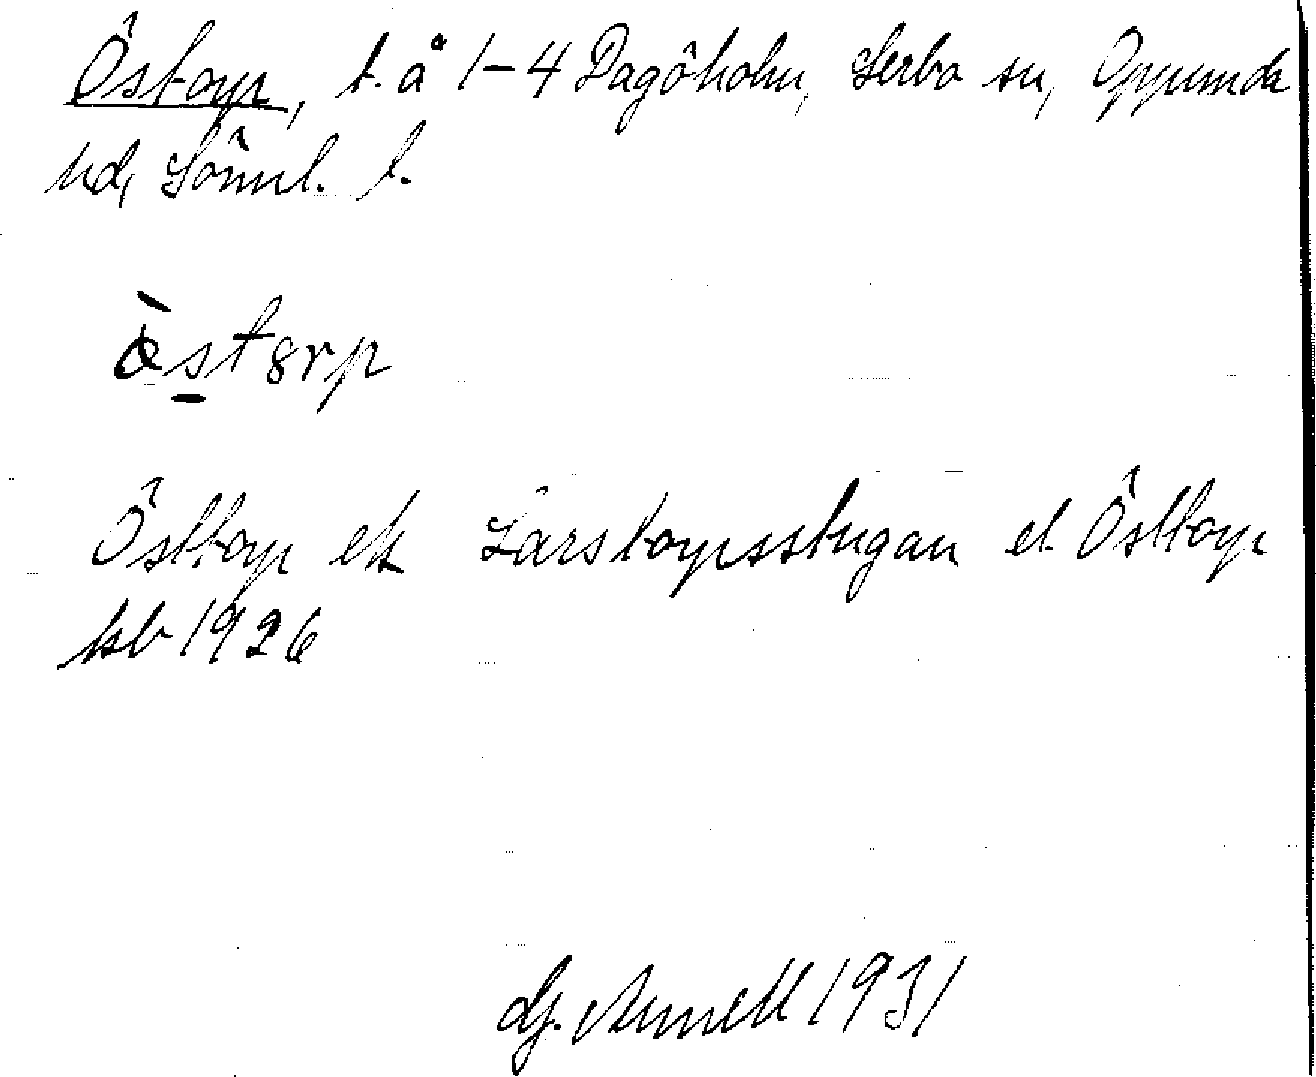 Östorp, t. å 1-4 Dagöholm, Lerbo sn, Oppunda
hd, Sörml. l.
ö̀stɜrp
Östtorp ek Larstorpsstugan el. Östtorp
kb 1926
G. Arnell 1931